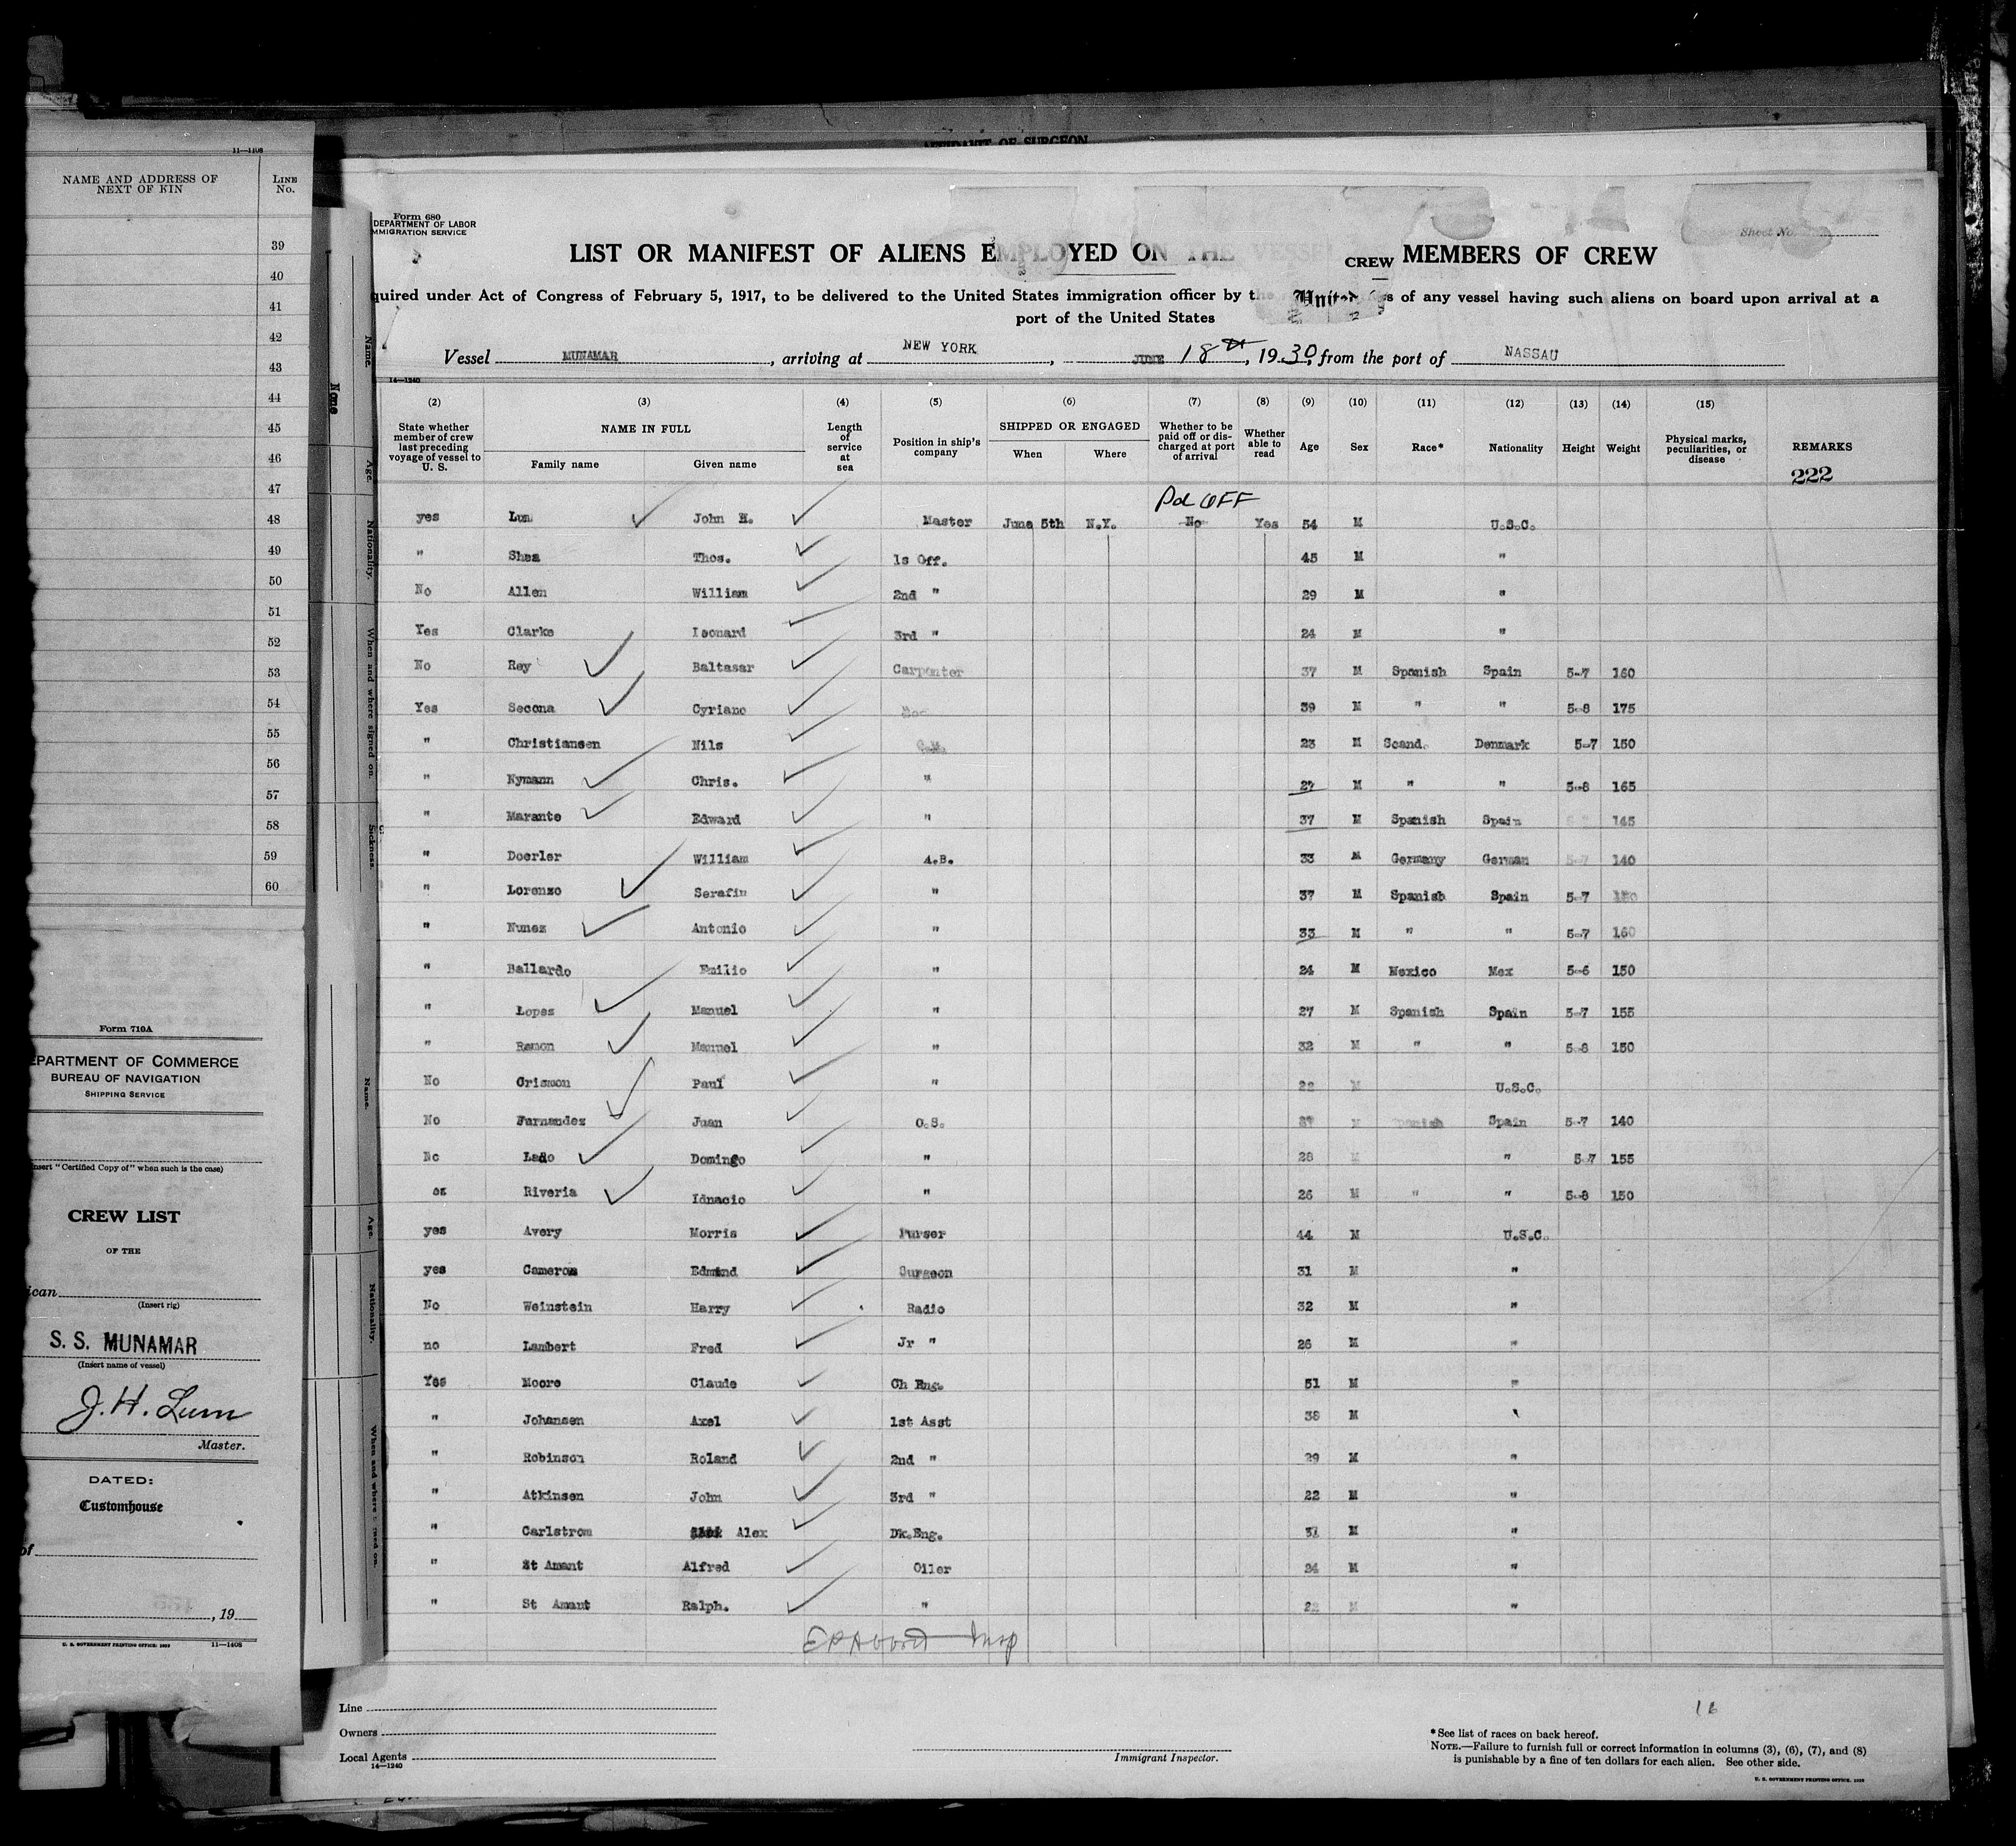 AFFIDAVIT OF SURGEON
11—1108
NAME AND ADDRESS OF
NEXT OF KIN
LINE
No.
39
40
41
42
43
44
45
46
47
48
49
50
51
52
53
54
55
56
57
58
59
60
Form 710A
DEPARTMENT OF COMMERCE
BUREAU OF NAVIGATION
SHIPPING SERVICE
(Insert "Certified Copy of" when such is the case)
CREW LIST
OF THE
(Insert rig)
S. S. MUNAMAR
(Insert name of vessel)
J. H. Lum
Master.
DATED:
Customhouse
of
, 19
U. S. GOVERNMENT PRINTING OFFICE: 1929 11—1408
Name.
None
Age.
Nationality.
When and where signed on.
Sickness.
Name.
Age.
Nationality.
When and where signed on.
Form 680
DEPARTMENT OF LABOR
IMMIGRATION SERVICE
Sheet No.
LIST OR MANIFEST OF ALIENS EMPLOYED ON THE VESSEL CREW MEMBERS OF CREW
quired under Act of Congress of February 5, 1917, to be delivered to the United States immigration officer by the United s of any vessel having such aliens on board upon arrival at a
port of the United States
Vessel MUNAMAR, arriving at NEW YORK, JUNE 18th, 1930, from the port of NASSAU
14—1240
(2) (3) (4) (5) (6) (7) (8) (9) (10) (11) (12) (13) (14) (15)
State whether member of crew last preceding voyage of vessel to U. S. NAME IN FULL Family name Given name Length of service at sea Position in ship's company SHIPPED OR ENGAGED When Where Whether to be paid off or discharged at port of arrival Whether able to read Age Sex Race* Nationality Height Weight Physical marks, peculiarities, or disease REMARKS
222
Pd OFF
yes Lum John H. Master June 5th N.Y. No Yes 54 M U.S.C.
" Shea Thos. 1s Off. 45 M "
No Allen William 2nd " 29 M "
Yes Clarke Leonard 3rd " 24 M "
No Rey Baltasar Carpenter 37 M Spanish Spain 5-7 160
Yes Secona Cyriano 39 M " " 5-8 175
" Christiansen Nils Q.M. 23 M Scand. Denmark 5-7 150
" Nymann Chris. " 27 M " " 5-8 165
" Marante Edward " 37 M Spanish Spain 145
" Doerler William A.B. 33 M Germany German 5-7 140
" Lorenzo Serafin " 37 M Spanish Spain 5-7
" Nunez Antonio " 33 M " " 5-7 160
" Ballardo Emilio " 24 M Mexico Mex 5-6 150
" Lopez Manuel " 27 M Spanish Spain 5-7 155
" Ramon Manuel " 32 M " " 5-8 150
No Crismon Paul " 22 M U.S.C.
No Fernandez Juan O.S. 27 M Spanish Spain 5-7 140
No Lado Domingo " 28 M " 5-7 155
Riveria Idnacio " 26 M " " 5-8 150
yes Avery Morris Purser 44 M U.S.C.
yes Cameron Edmund Surgeon 31 M "
No Weinstein Harry Radio 32 M "
no Lambert Fred Jr " 26 M "
Yes Moore Claude Ch Eng. 51 M "
" Johansen Axel 1st Asst 38 M "
" Robinson Roland 2nd " 29 M "
" Atkinsen John 3rd " 22 M "
" Carlstrom Alex Dk.Eng. 31 M "
" St Amant Alfred Oiler 24 M "
" St Amant Ralph. " 22 M "
Insp
16
Line
Owners
Local Agents
14—1240
Immigrant Inspector.
*See list of races on back hereof.
NOTE.—Failure to furnish full or correct information in columns (3), (6), (7), and (8)
is punishable by a fine of ten dollars for each alien. See other side.
U. S. GOVERNMENT PRINTING OFFICE. 1929